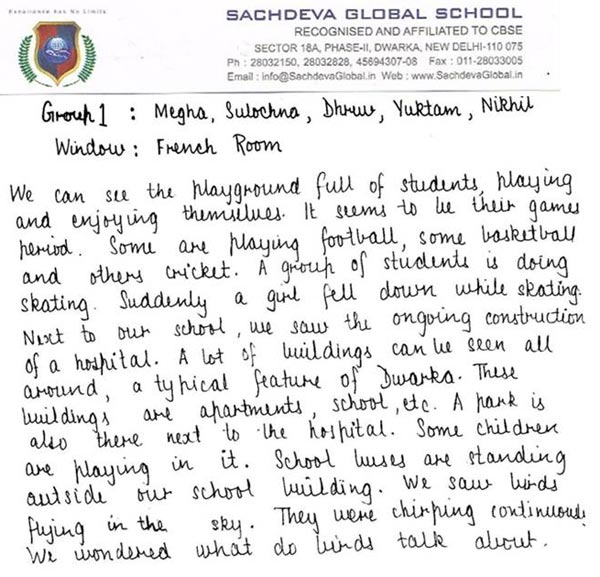 Excellence has No Limits
SACHDEVA GLOBAL SCHOOL
RECOGNISED AND AFFILIATED TO CBSE
SECTOR 18A, PHASE-II, DWARKA, NEW DELHI-110 075
Ph : 28032150, 28032828, 45694307-08 Fax : 011-28033005
Email : info@SachdevaGlobal.in Web : www.SachdevaGlobal.in
Group 1 : Megha, Sulochna, Dhruv, Yuktam, Nikhil
Window : French Room
We can see the playground full of students, playing
and enjoying themselves. It seems to be their games
period. Some are playing football, some basketball
and others cricket. A group of students is doing
skating. Suddenly a girl fell down while skating.
Next to our school, we saw the ongoing construction
of a hospital. A lot of buildings can be seen all
around, a typical feature of Dwarka. These
buildings are apartments, school, etc. A park is
also there next to the hospital. Some children
are playing in it. School buses are standing
outside our school building. We saw birds
flying in the sky. They were chirping continuously
We wondered what do birds talk about.